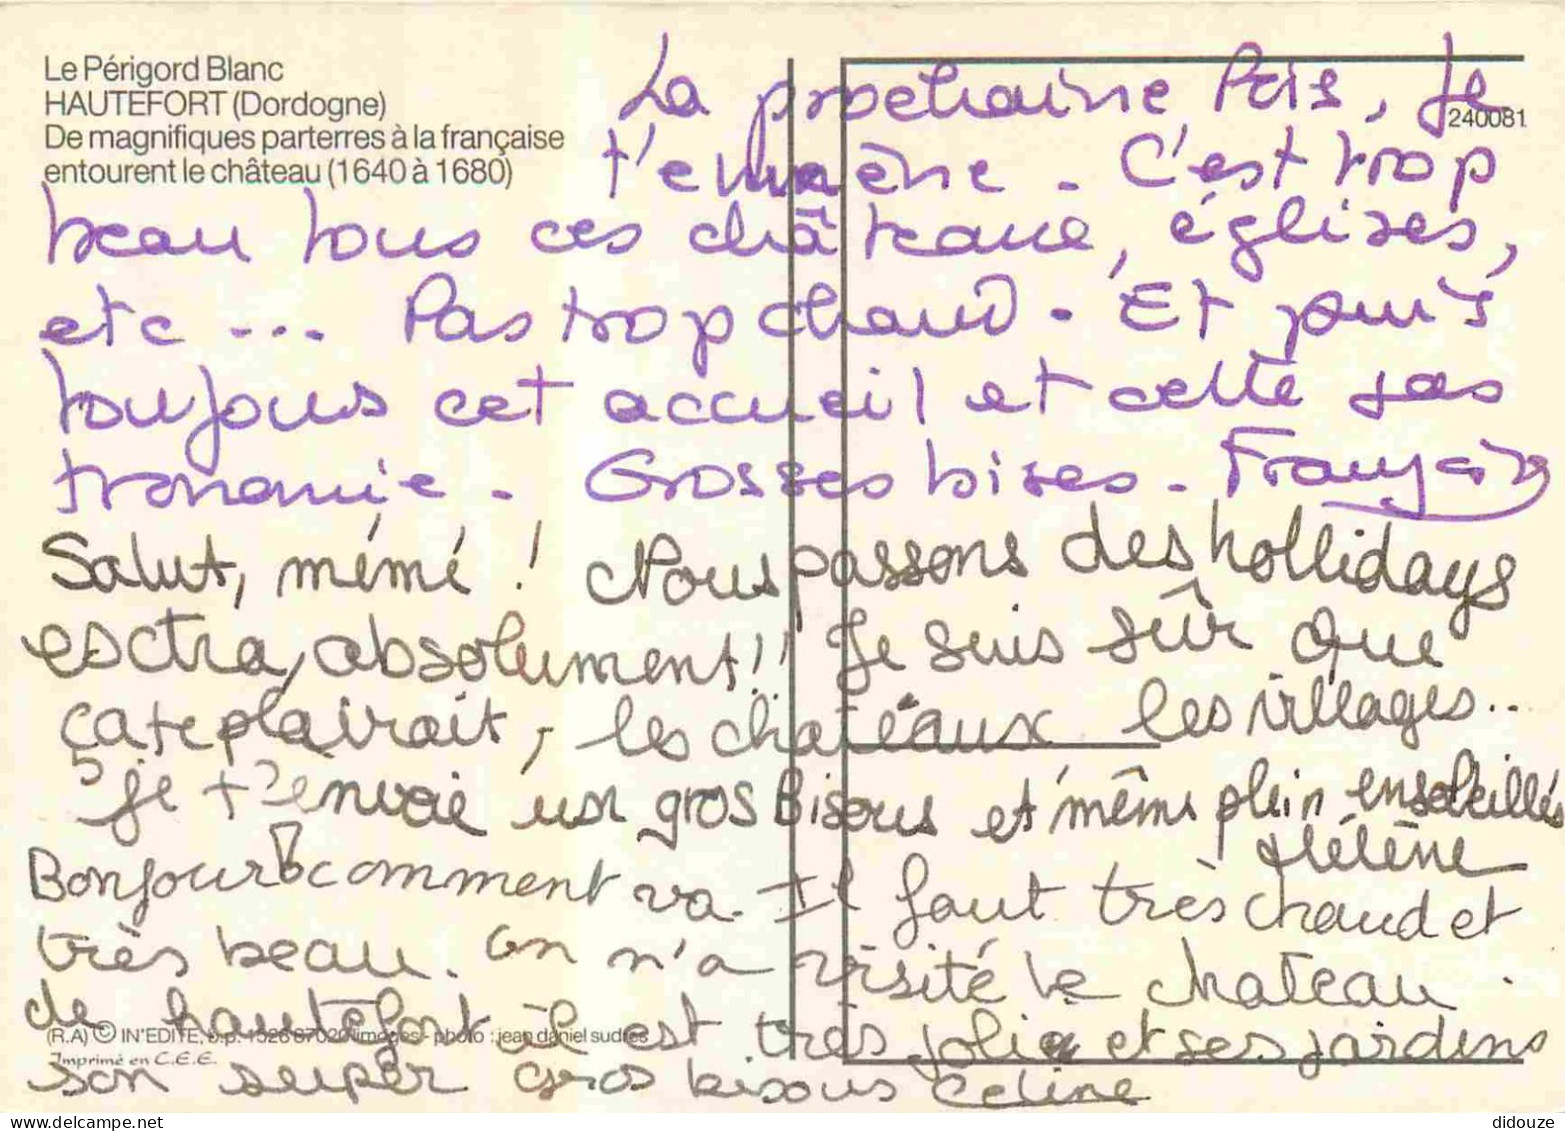 Le Périgord Blanc
HAUTEFORT (Dordogne)
De magnifiques parterres à la française
entourent le château (1640 à 1680)
240081
La prochaine fois, je
t'emmène. C'est trop
beau tous ces châteaux, églises,
etc... Pas trop chaud. Et puis
toujours cet accueil et cette gas
tronomie. Grosses bises. François
Salut, mémé ! Nous passons des hollidays
esctra, absolument!! Je suis sûr que
ça te plairait, les chateaux les villages..
je t'envoie un gros Bisous et même plein ensoleillés
Hélène
Bonjour comment va. Il faut très chaud et
très beau. on n'a visité le chateau
de hautefort il est très jolie et ses jardins
son super gros bisous Celine
(R.A) © IN'EDITE, b.p. 1526 87020 limoges - photo : jean daniel sudres
Imprimé en C.E.E.
didouze